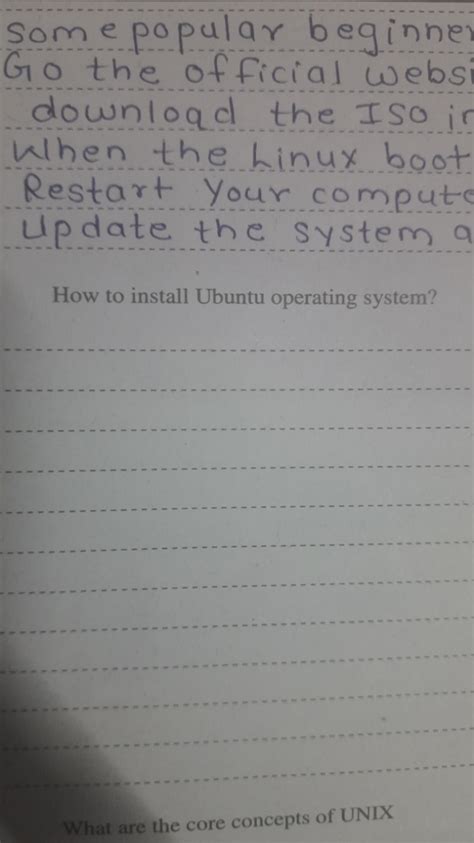 some popular beginner
Go the official websi
download the ISO in
When the Linux boot
Restart Your compute
Update the system a
How to install Ubuntu operating system?
What are the core concepts of UNIX